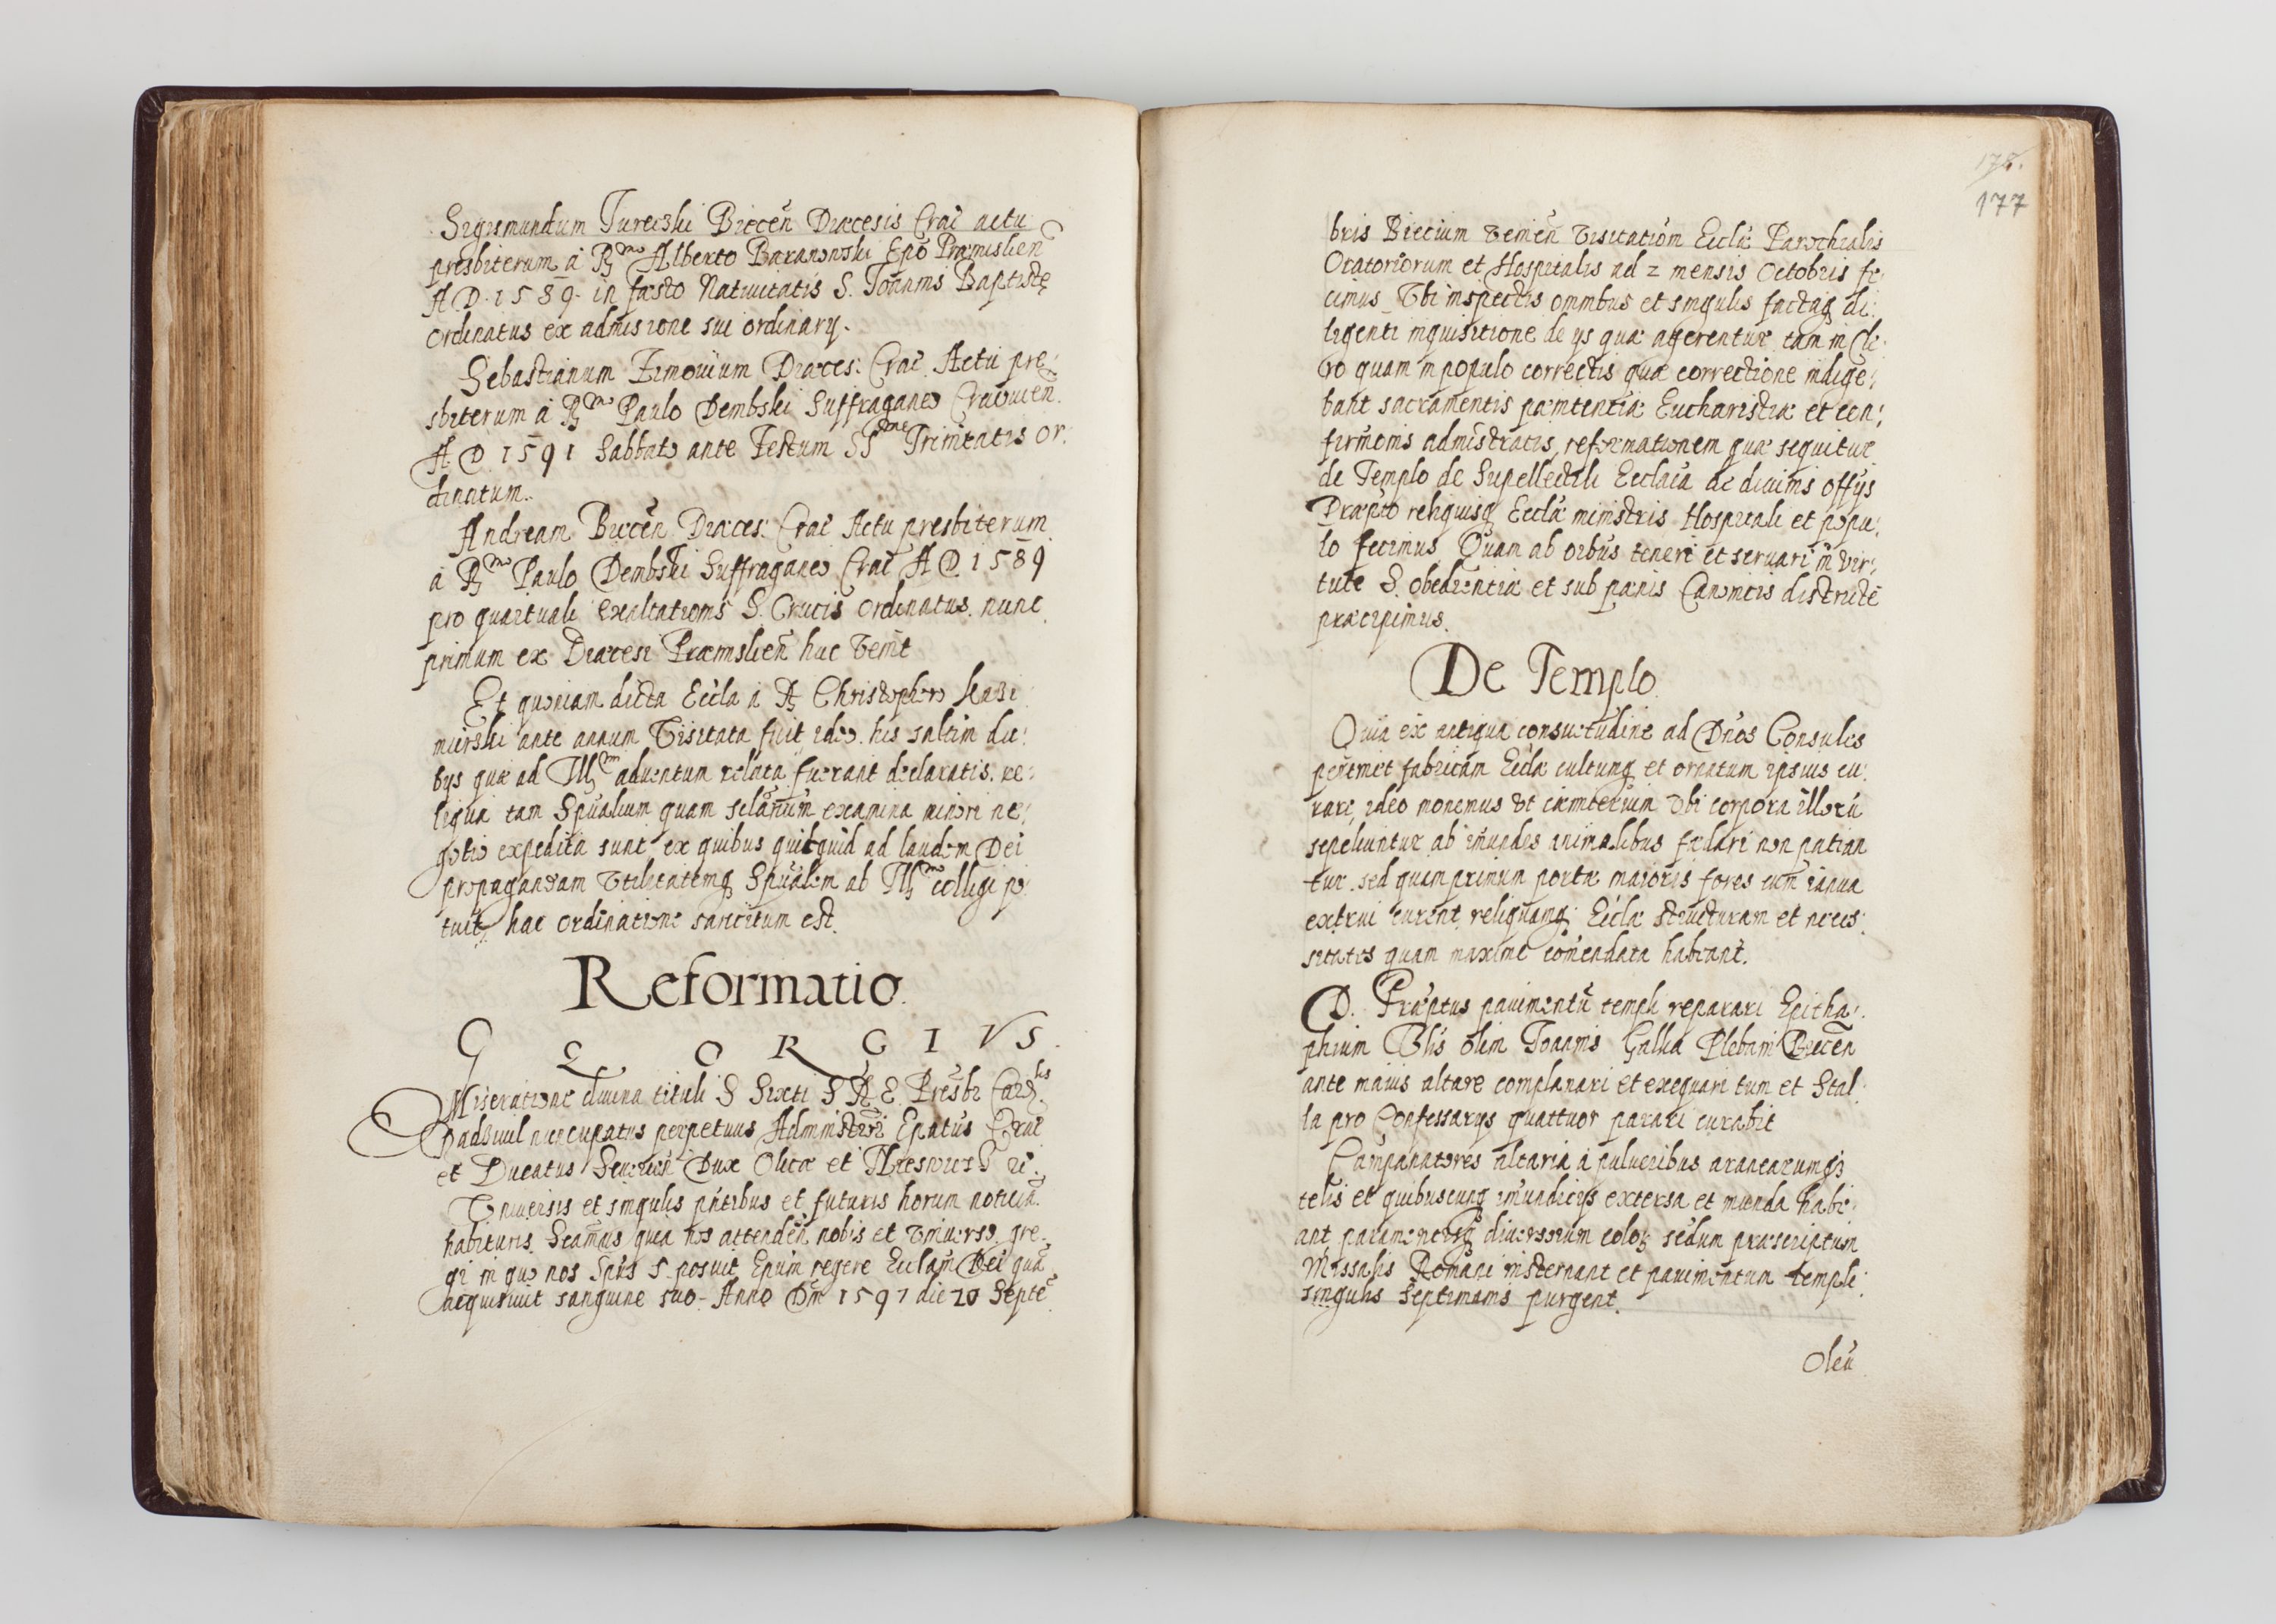 Sigismundum Jurecski Biecen̄ Diæcesis Crac̄ actu
presbiterum a Rmo Alberto Baranowski Epo Præmislien̄
A D. 1589. in fæsto Natiuitatis S. Joannis Baptistę
Ordinatus ex admisione sui ordinarÿ.
Sebastianum Diæces: Crac̄ Actu pre:
sbiterum a Rmo Paulo Dembski Suffraganeo Cracouien̄
A D 1591 Sabbato ante Festum SSmae Trinitatis or:
dinatum.
Andream Biecen̄ Diæces: Crac̄ Actu presbiterum
a Rmo Paulo Dembski Suffraganeo Crac̄ A D 1589
pro quartuali exaltationis S. Crucis Ordinatus. nunc
primum ex Diæcesi Præmislien̄ huc venit
Et quoniam dicta Eccla a R Christophoro Kazi
mirski ante annum Visitata fuit ideo. his saltim du:
bÿs quæ ad Illmi aduentum relata fuerant declaratis. re:
liqua tam Spualium quam sclarium examina minori ne:
gotio expedita sunt ex quibus quitquid ad laudem Dei
propagandam Vtilitatemq Spualem ab Illmo colligi po:
tuit, hac ordinatione sancitum est.
Reformatio.
GEORGIVS.
Miseratione diuina tituli S Sixti S R E. Presbr Cardlis
Radziuil nuncupatus perpetuus Administror Epatus Crac̄
et Ducatus Seuerien̄ Dux Olicæ et Niesuiesz
Vniuersis et singulis pntibus et futuris horum noticiā
habituris. Scamus quia nos attenden̄ nobis et vniuerso. gre:
gi in quo nos Spus S. posuit Epum regere Ecclam Dei quā
acquisiuit sanguine suo. Anno Dni 1597 die 20 Septē
178.
177
bris Biecium venien̄ visitationem Ecclæ Parochialis
Oratoriorum et Hospitalis ad 2 mensis Octobris fe
cimus Vbi inspectis omnibus et singulis factaq di:
ligenti inquisitione de ÿs quæ agerentur tam in Cle:
ro quam in populo correctis quæ correctione indige:
bant sacramentis pænitentiæ Eucharistiæ et con:
firmonis administratis, reformationem quæ sequitur
de Templo de Supellectili Ecclaia de diuinis officÿs
Præpto reliquisq Ecclæ ministris Hospitali et popu:
lo fecimus Quam ab oibus teneri et seruari in vir:
tute S. obedientiæ et sub pænis Canonicis districte
præcipimus.
De Templo.
Quia ex antiqua consuetudine ad Dnos Consules
pertinet fabricam Ecclæ cultumq et ornatum ipsius cu:
rare, ideo monemus vt cæmiterium vbi corpora illorū
sepeliuntur ab imundis animalibus fœdari non patian
tur. sed quamprimum portæ maioris fores cum ianua
extrui curent, reliquamq Ecclæ structuram et neces:
sitates quam maxime comendata habeant.
D. Præptus pauimentū templi reparari Epitha:
phium Vblis olim Joannis Galka Plebani Biecen̄
ante maius altare complanari et exequari tum et Stal:
la pro Confessarÿs quattuor parari curabit
Campanatores altaria a pulueribus aranearumq
telis et quibuscunq imundicÿs extersa et munda habe:
ant paramentisq diuersorum color secdum præscriptum
Missalis Romani insternant et pauimentum templi
singulis Septimanis purgent.
Oleū